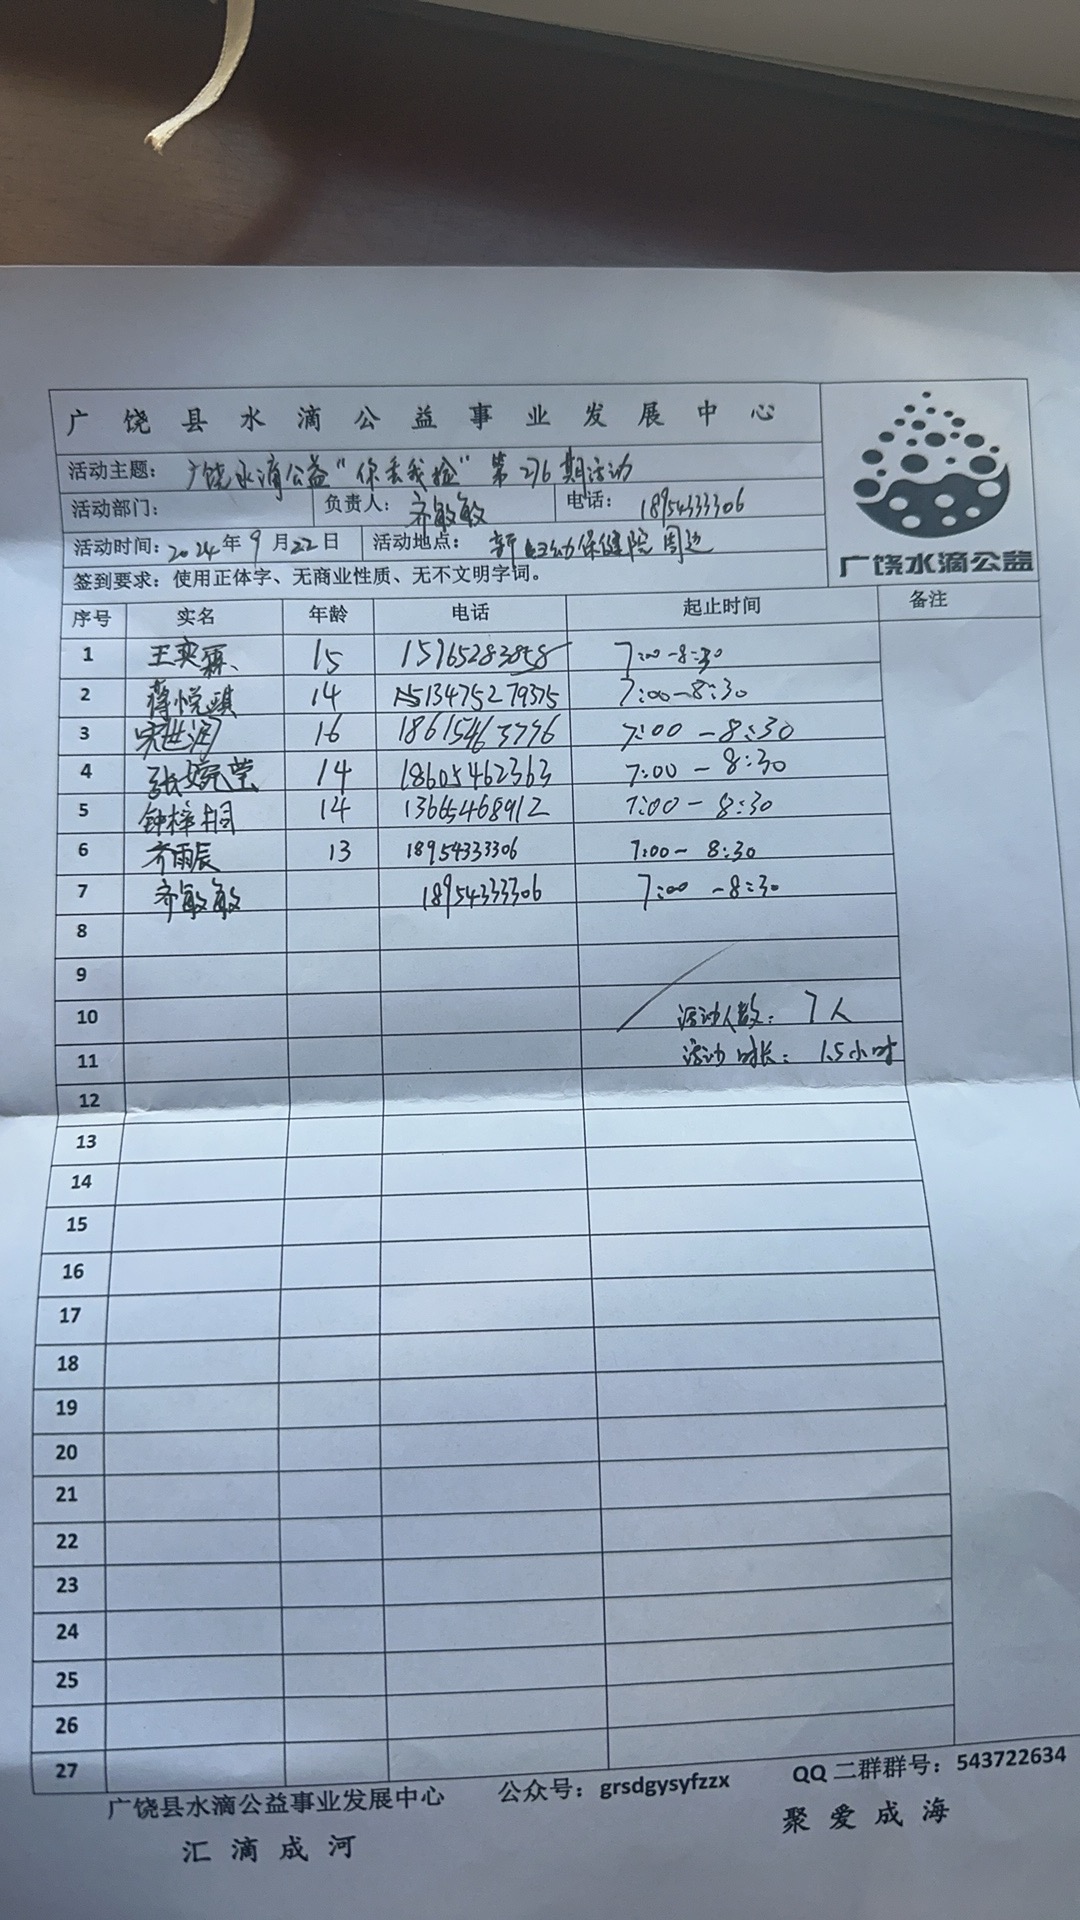 广饶县水滴公益事业发展中心
活动主题：广饶水滴公益"你丢我捡"第276期活动
活动部门： 负责人：齐敏敏 电话：18954333306
活动时间：2024年9月22日 活动地点：新妇幼保健院周边
广饶水滴公益
签到要求：使用正体字、无商业性质、无不文明字词。
序号 实名 年龄 电话 起止时间 备注
1 王奕霖、 15 15965283858 7:00-8:30
2 蒋悦琪 14 13475279375 7:00-8:30
3 宋世润 16 18615463796 7:00-8:30
4 张婉莹 14 18605462363 7:00-8:30
5 钟梓桐 14 13665468912 7:00-8:30
6 齐雨辰 13 18954333306 7:00-8:30
7 齐敏敏 18954333306 7:00-8:30
8
9
10 活动人数：7人
11 活动时长：1.5小时
12
13
14
15
16
17
18
19
20
21
22
23
24
25
26
27
广饶县水滴公益事业发展中心 公众号：grsdgysyfzzx QQ二群群号：543722634
汇滴成河 聚爱成海